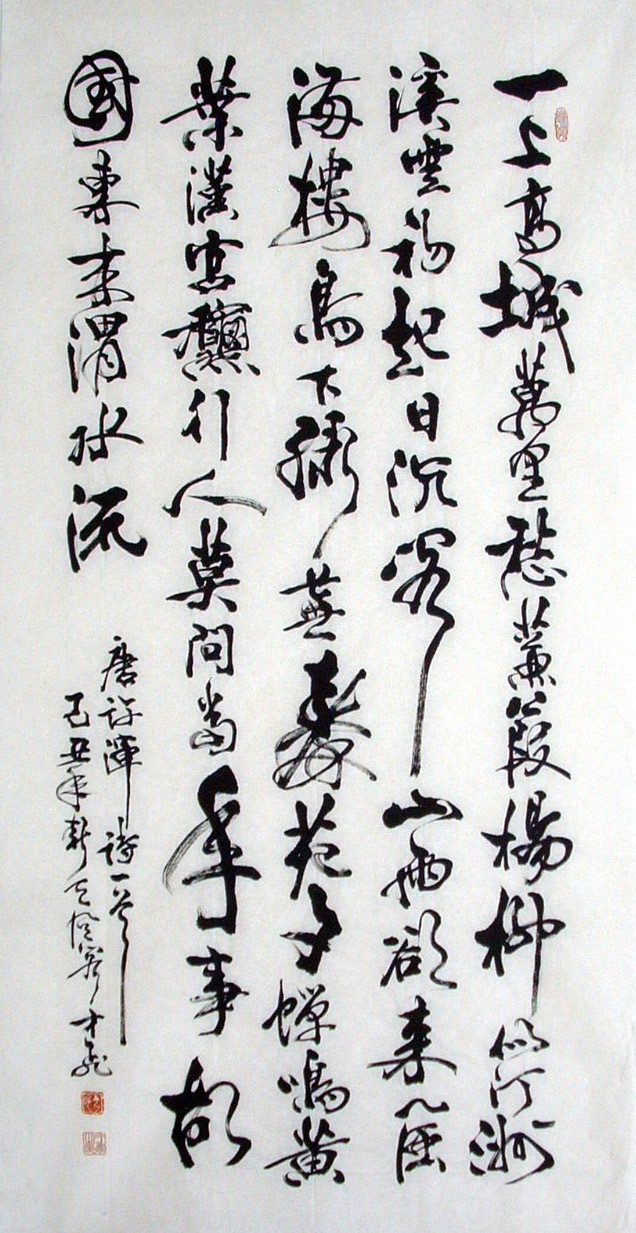 一上高城萬里愁蒹葭楊柳似汀洲
溪雲初起日沉閣山雨欲来風
滿樓鳥下綠蕪秦苑夕蟬鳴黄
葉漢宮龝行人莫問當年事故
國東来渭水流
唐許渾詩一首
己丑年新